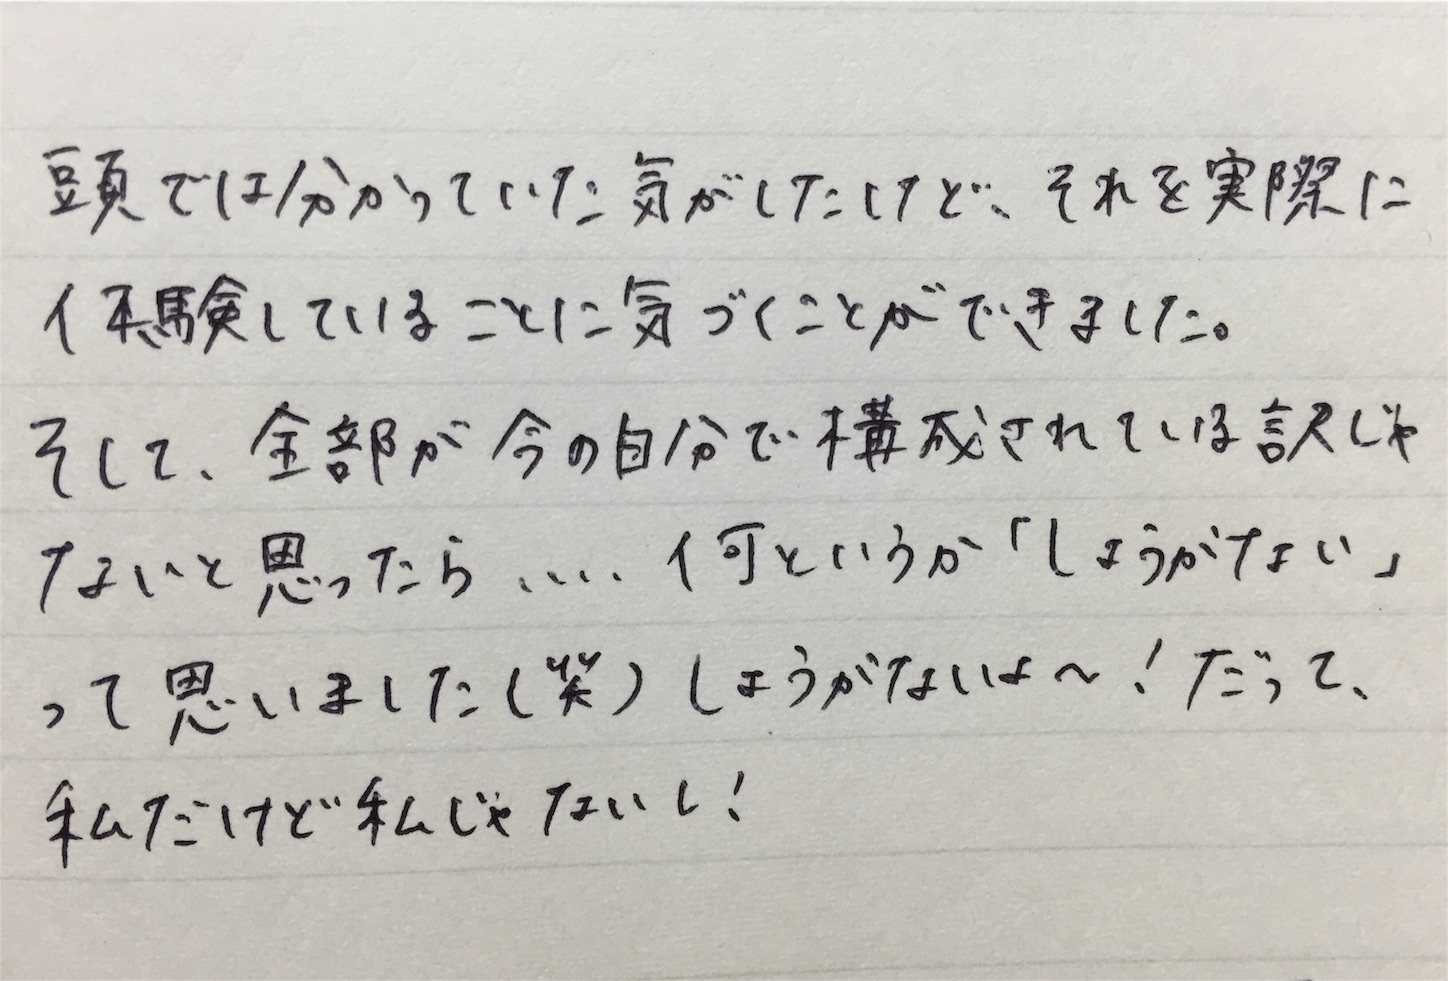 頭では分かっていた気がしたけど、それを実際に
体験していることに気づくことができました。
そして、全部が今の自分で構成されている訳じゃ
ないと思ったら、、、、何というか「しょうがない」
って思いました(笑)しょうがないよ〜！だって、
私だけど私じゃないし！